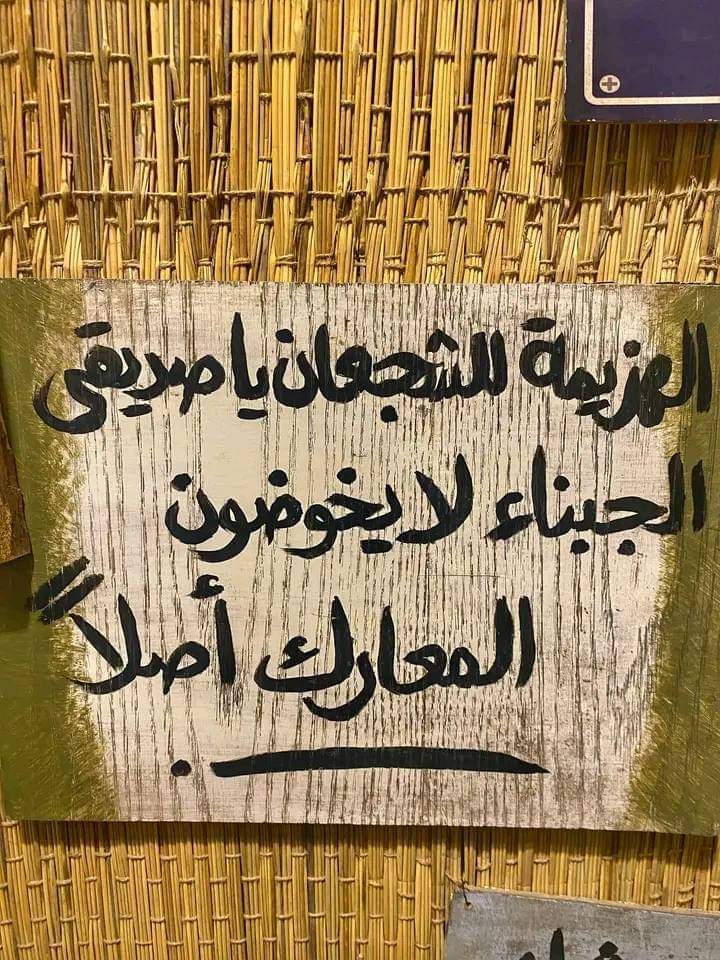 الهزيمة للشجعان يا صديقي
الجبناء لا يخوضون
المعارك أصلاً